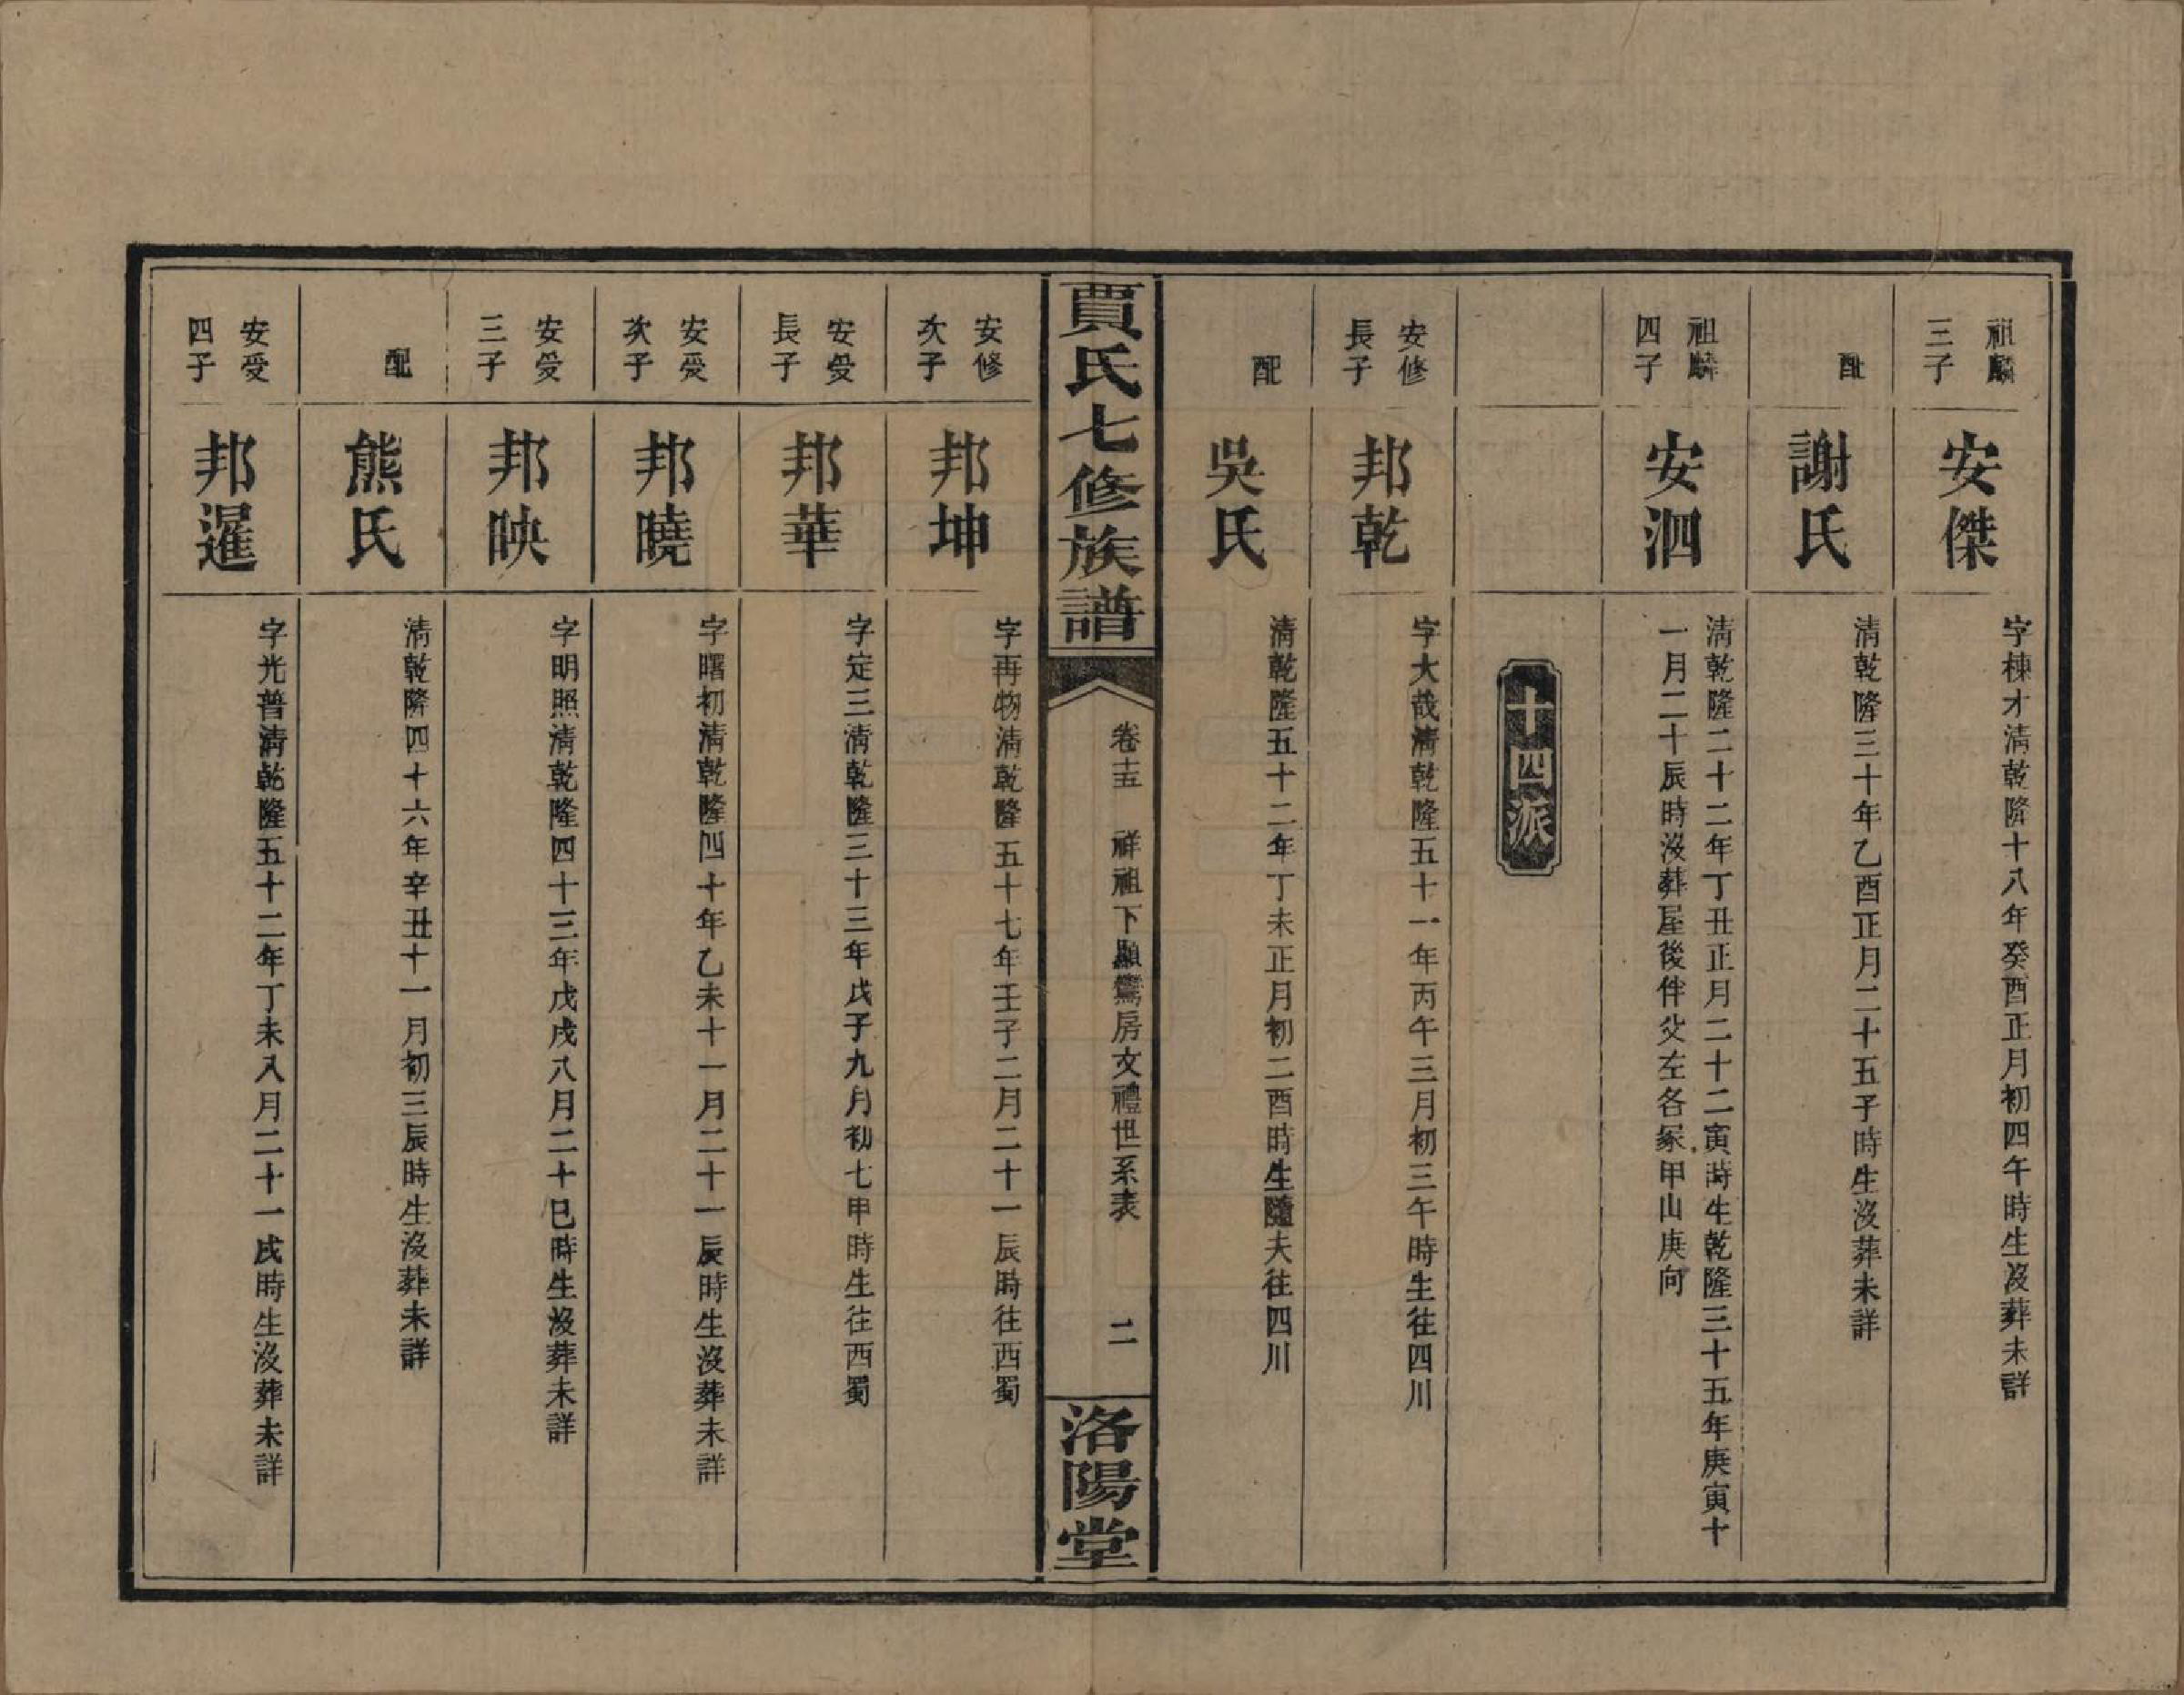 祖麟
三子
安傑
字棟才清乾隆十八年癸酉正月初四午時生沒葬未詳
配
謝氏
清乾隆三十年乙酉正月二十五子時生沒葬未詳
祖麟
四子
安泗
清乾隆二十二年丁丑正月二十二寅時生乾隆三十五年庚寅十
一月二十辰時沒葬屋後伴父左各冢甲山庚向
十四派
安修
長子
邦乾
字大哉清乾隆五十一年丙午三月初三午時生往四川
配
吳氏
清乾隆五十二年丁未正月初二酉時生隨夫往四川
賈氏七修族譜
卷十五 祥祖下顯鸞房文禮世系表 二
洛陽堂
安修
次子
邦坤
字再物清乾隆五十七年壬子二月二十一辰時往西蜀
安受
長子
邦華
字定三清乾隆三十三年戊子九月初七申時生往西蜀
安受
次子
邦曉
字曙初清乾隆四十年乙未十一月二十一辰時生沒葬未詳
安受
三子
邦映
字明照清乾隆四十三年戊戌八月二十巳時生沒葬未詳
配
熊氏
清乾隆四十六年辛丑十一月初三辰時生沒葬未詳
安受
四子
邦暹
字光普清乾隆五十二年丁未八月二十一戌時生沒葬未詳